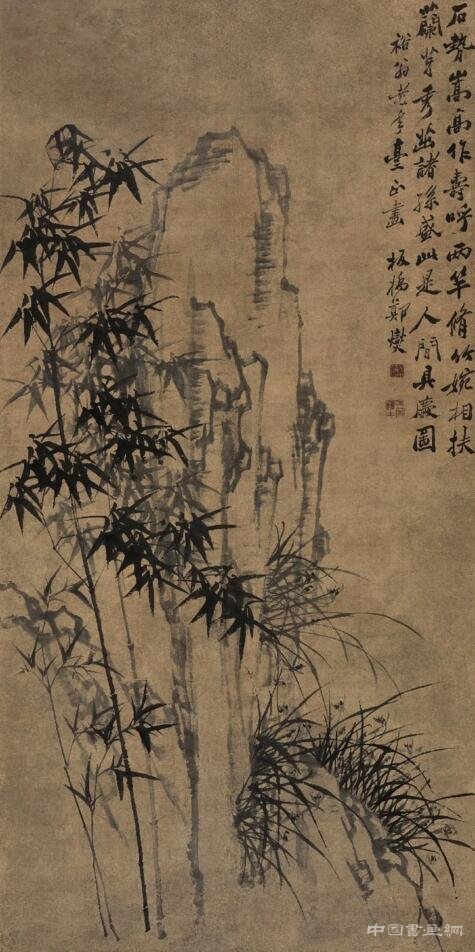 石勢嵩高作壽呼兩竿脩竹婉相扶
蘭芽秀茁諸孫盛此是人間具慶圖
裕翁老年臺正畫 板橋鄭燮
中國書畫網